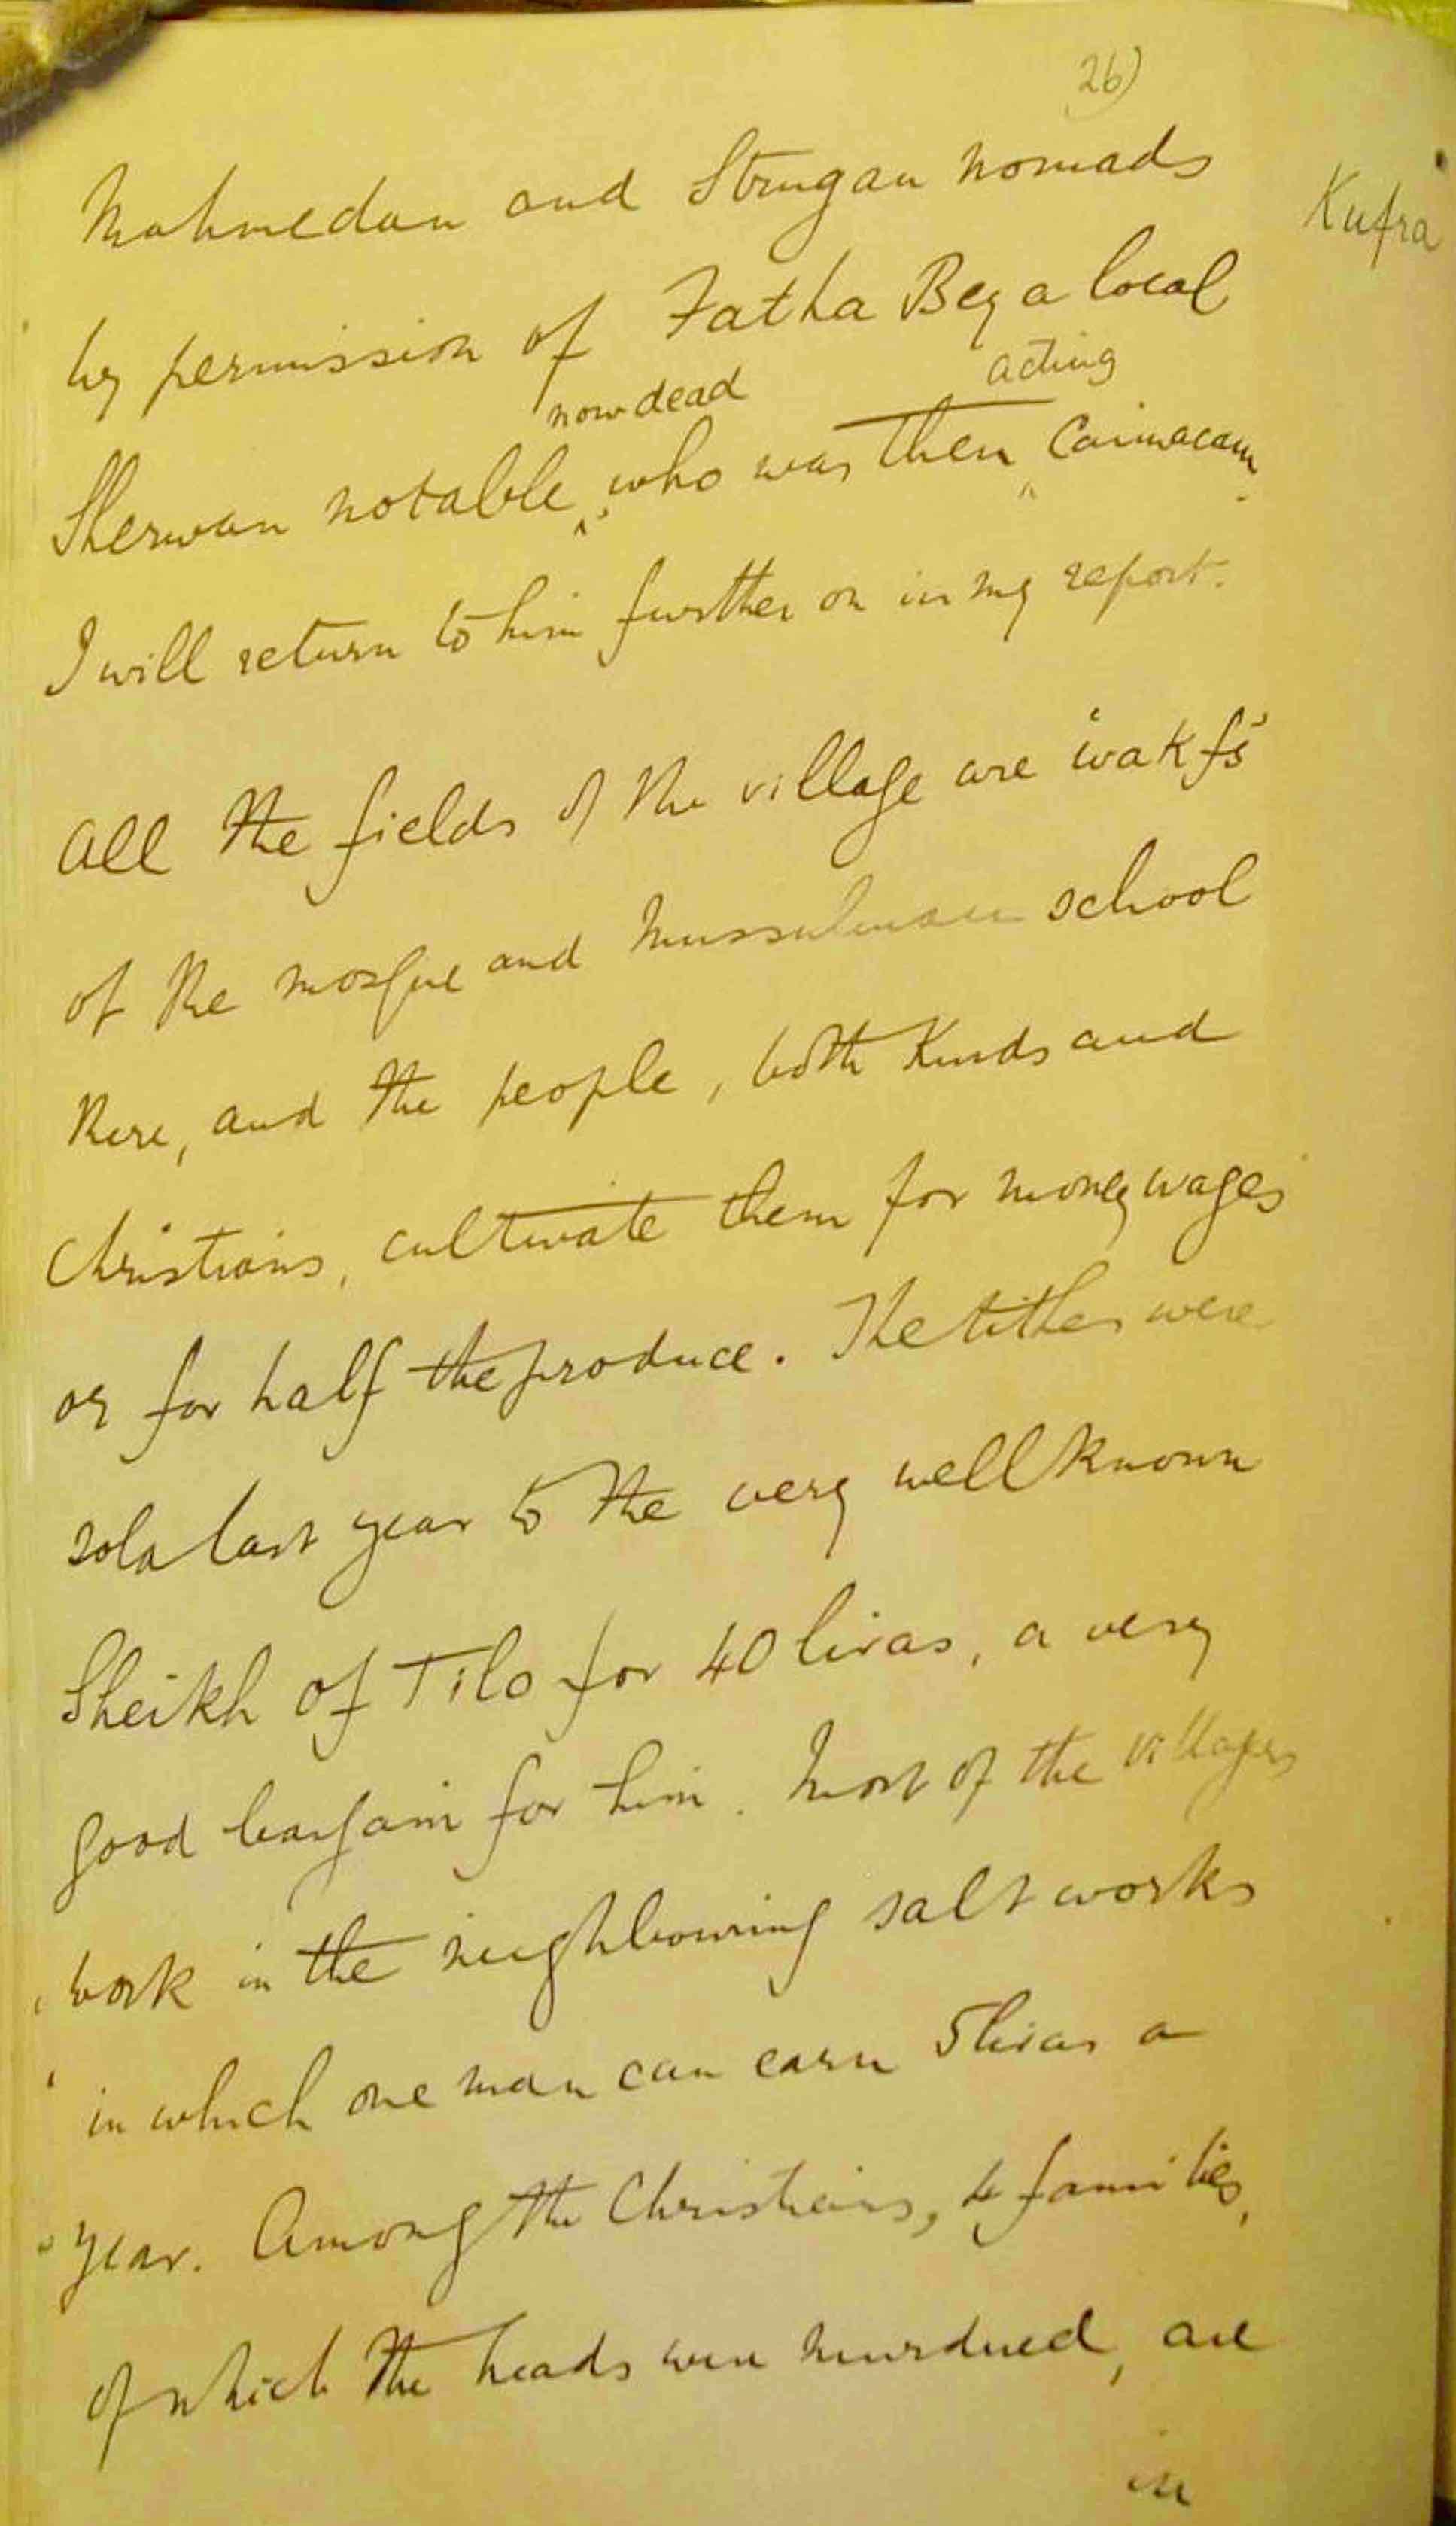 26)
Mahmedan and Strugan nomads
Kufra
by permission of Fatha Beg a local
now dead
acting
Sherwan notable, who was then Caimacam.
I will return to him further on in my report.
All the fields of the village are 'wakfs'
of the mosque and Mussulman school
there, and the people, both Kurds and
Christians, cultivate them for money wages
or for half the produce. The tithes were
sold last year to the very well known
Sheikh of Tilo for 40 liras, a very
good bargain for him. Most of the villagers
work in the neighbouring salt works
in which one man can earn 5 liras a
year. Among the Christians, 4 families,
of which the heads were murdered, are
in